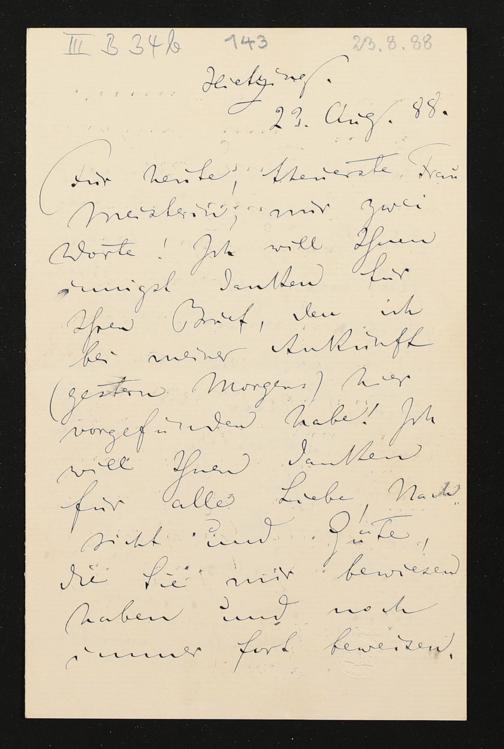 III B 34b 143 23.8.88
Hietzing.
23. Aug. 88.
Für heute, theuerste Frau
Meisterin, nur zwei
Worte! Ich will Ihnen
innigst danken für
Ihren Brief, den ich
bei meiner Ankunft
(gestern Morgens) hier
vorgefunden habe! Ich
will Ihnen danken
für alle Liebe, Nach
sicht und Güte,
die Sie mir bewiesen
haben und noch
immer fort beweisen.